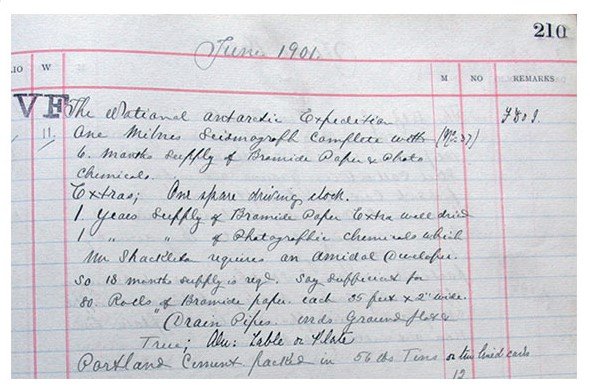 210
June 1901.
IO W M NO REMARKS
VF The National Antarctic Expedition
11. One Milnes Seismograph Complete with (No: 37) F Do I.
6. Months Supply of Bromide Paper & Photo
Chemicals.
Extras; One spare driving clock.
1. Years Supply of Bromide Paper Extra well dried
1 " " of Photographic chemicals which
Mr Shackleton requires an Amidol Developer.
So 18 months supply is reqd. Say Sufficient for
80. Rolls of Bromide paper. each 35 feet x 2" wide.
" Drain Pipes. ends Ground flat &
True; Alu: Table or Plate
Portland Cement packed in 56 lbs Tins or tin lined casks
12